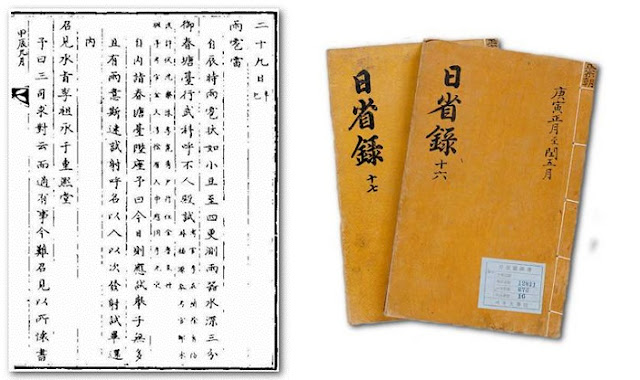 二十九日
雨雹雷
自辰時雨雹狀如小豆至四更測雨器水深三分
御春塘臺行武科呼不人殿試
自內詣春塘臺陞座予曰今日則應試擧子無多
且有雨意斯速試射呼名以入以次發射試畢還
內
召見承旨李祖承于重熙堂
予曰三司求對云而適有事今難召見以所懷書
甲辰九月
庚寅正月至閏五月
日省錄 十六
12811
16
日省錄 十七